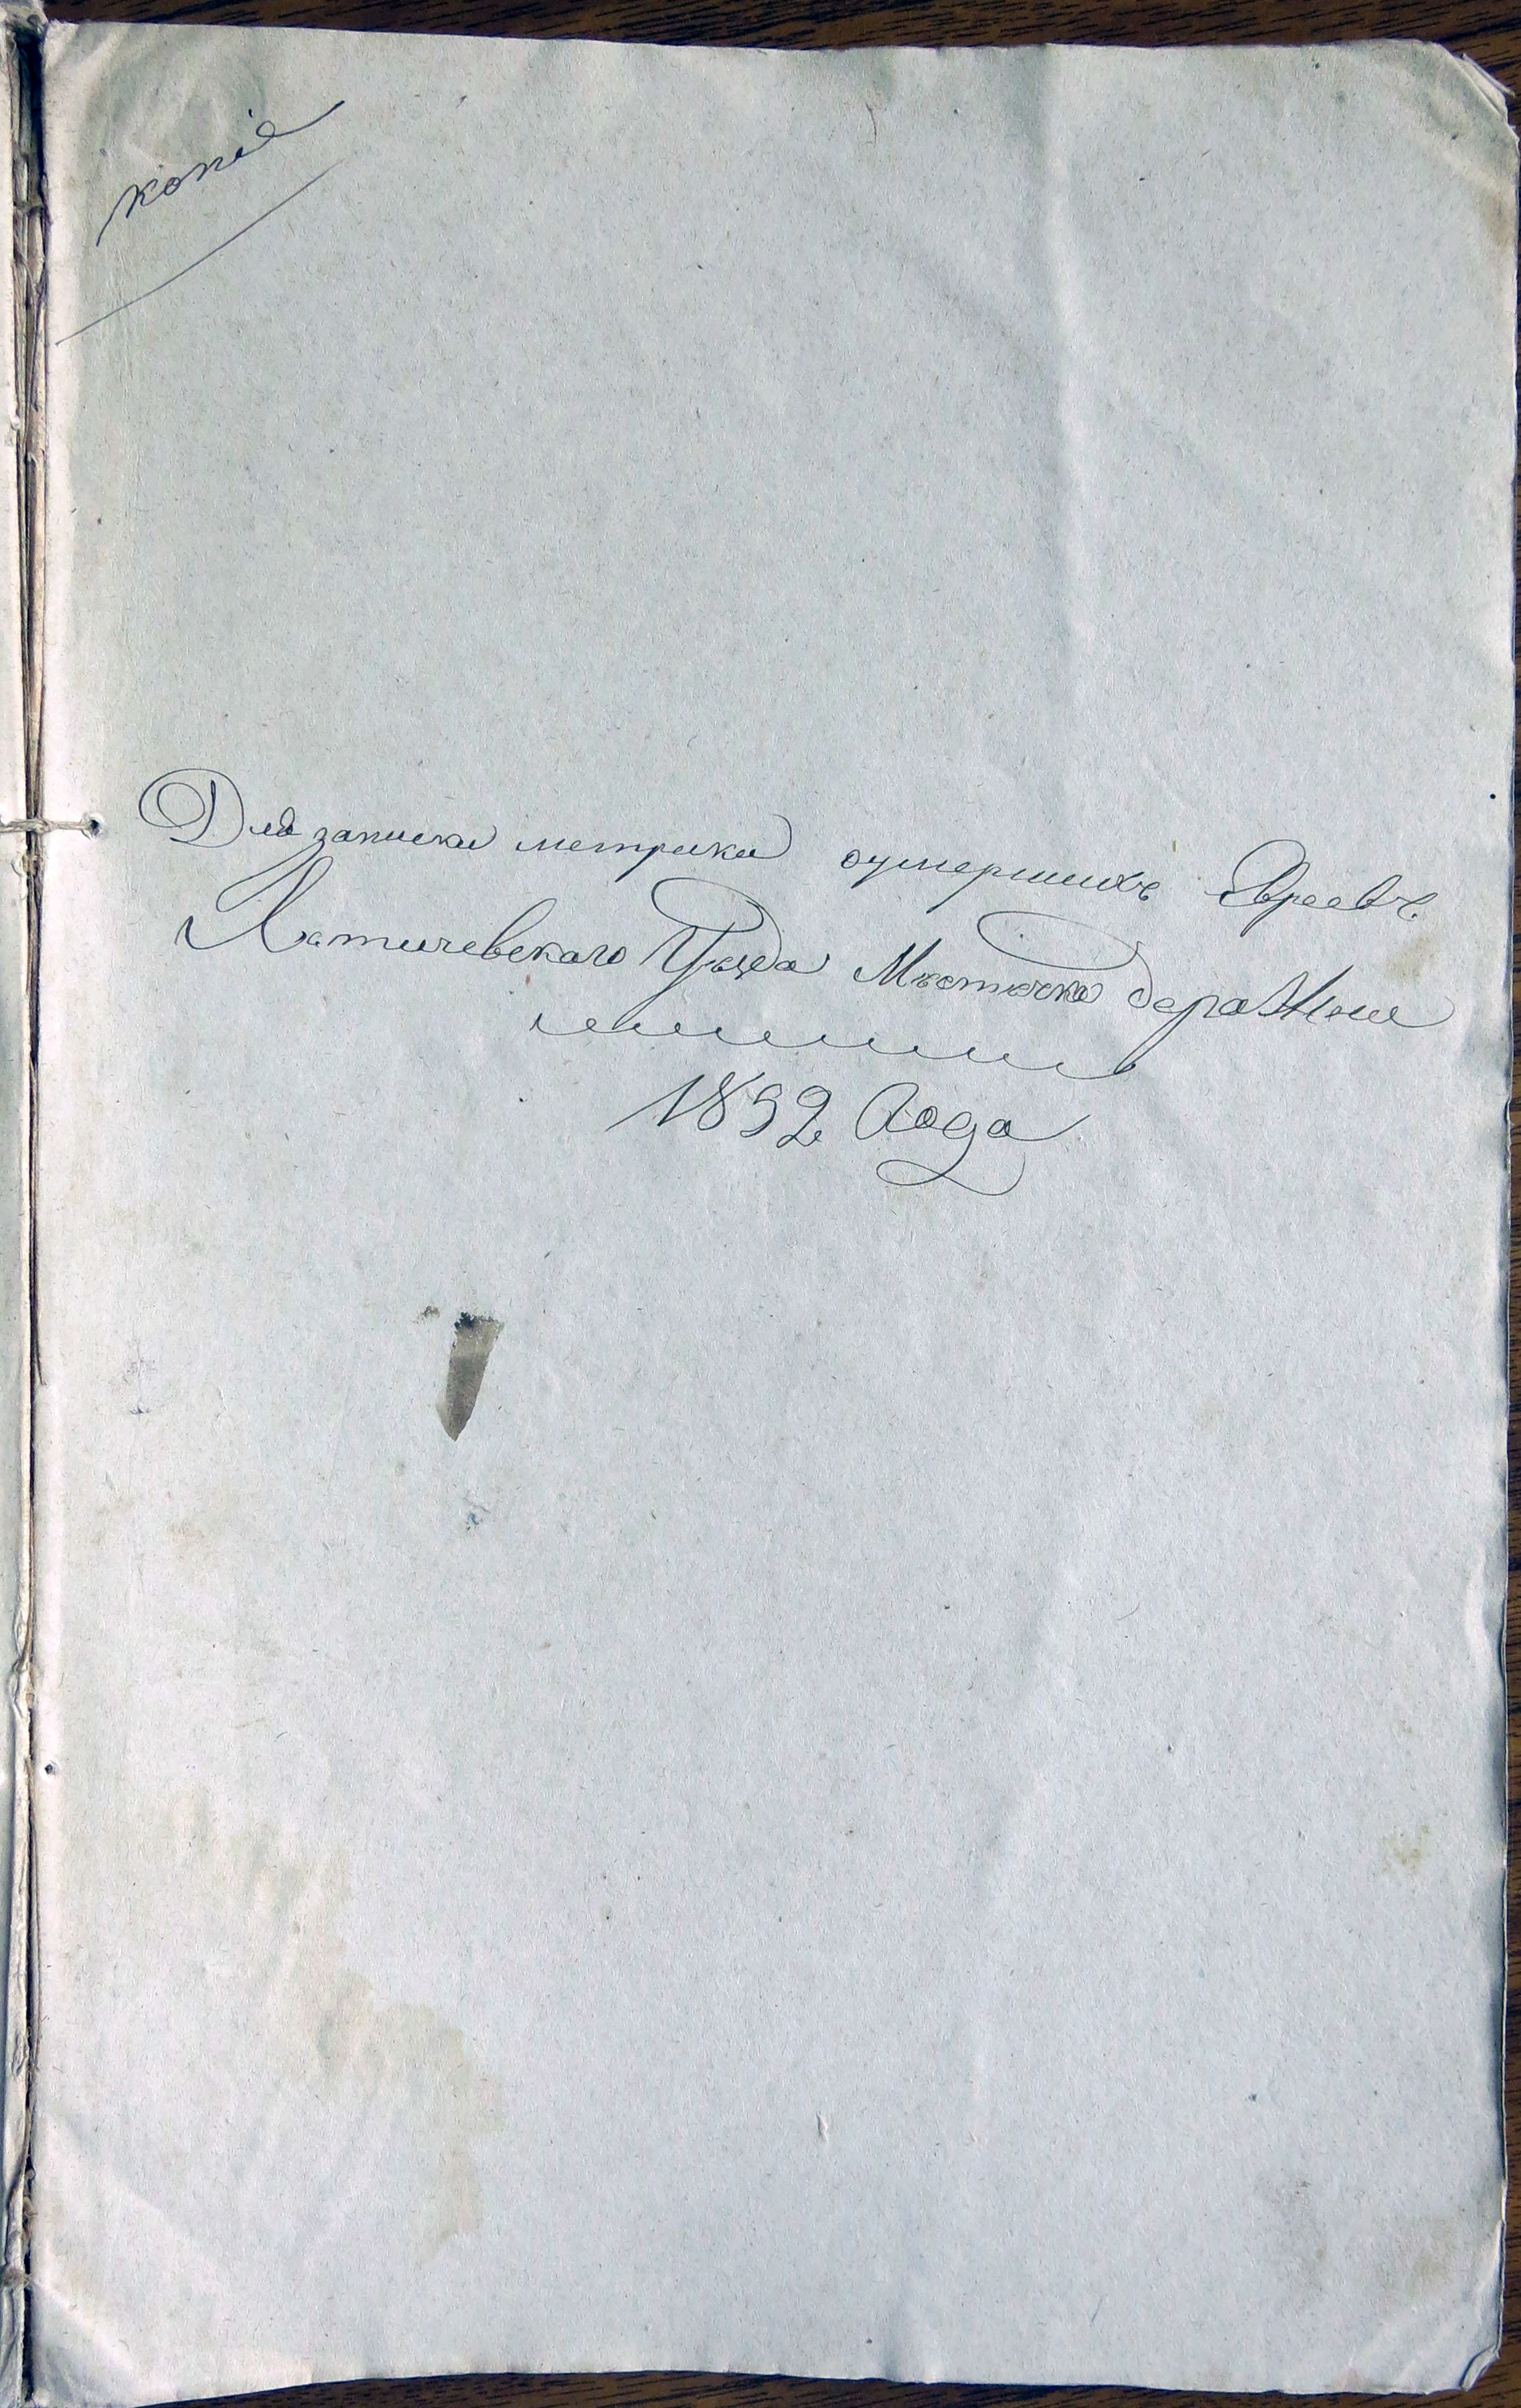 копіе
Для записки метрики оумершихъ Евреевъ
Латичевскаго Уѣзда Мѣстечка деражне
1892 Года